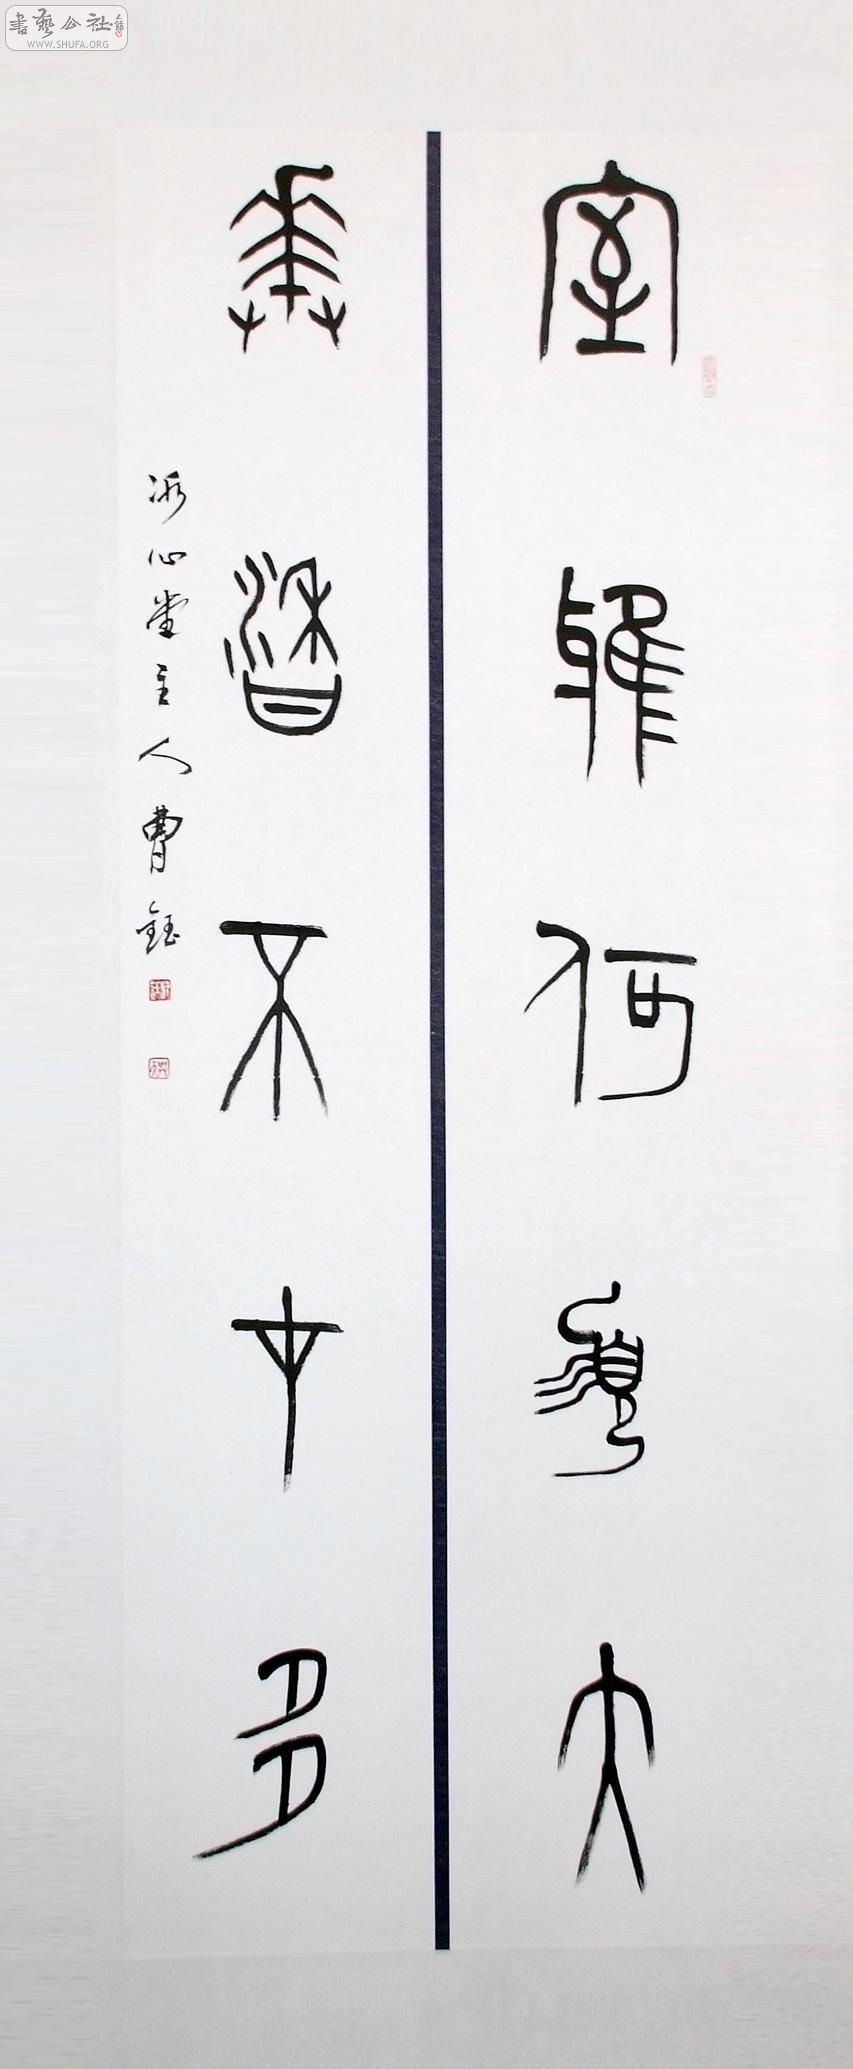 書藝公社
WWW.SHUFA.ORG
室雅何須大
華香不在多
冰心堂主人曹鈺